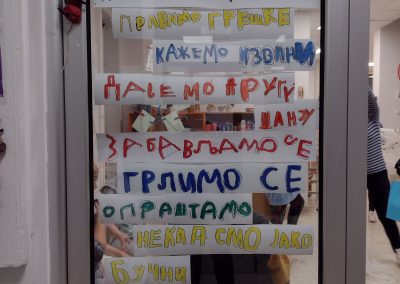 ПРАВИМО ГРЕШКЕ
КАЖЕМО ИЗВИНИ
ДАЈЕМО ДРУГУ
ШАНЗУ
ЗАБАВЉАМО СЕ
ГРЛИМО СЕ
ОПРАШТАМО
НЕКАД СМО ЈАКО
БУЧНИ